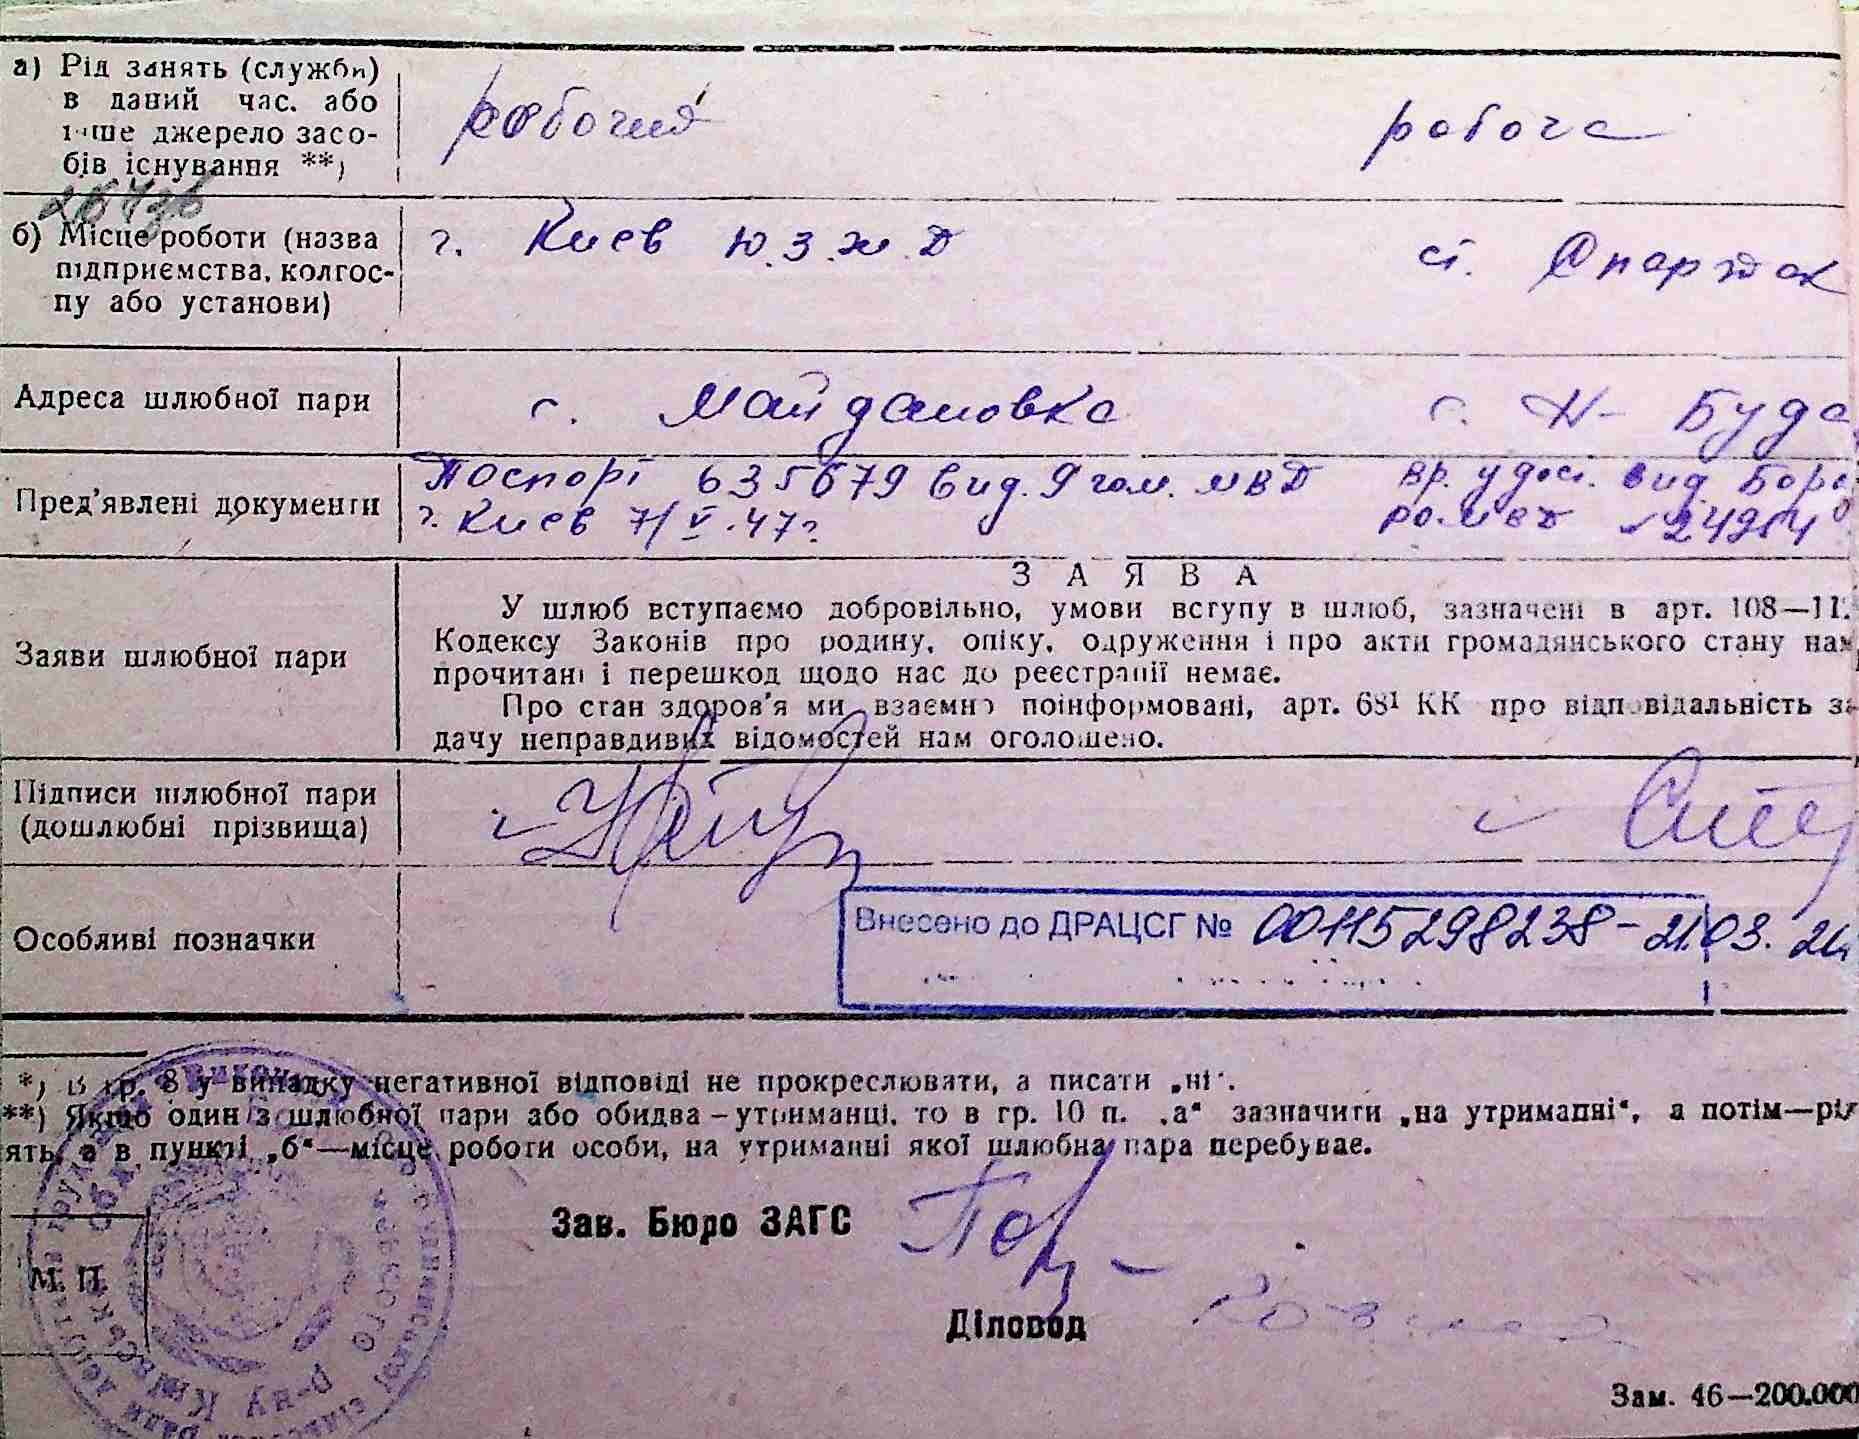 а) Рід занять (служби) в даний час. або інше джерело засо-бів існування **)
робочий
робоча
б) Місце роботи (назва підприємства, колгос-пу або установи)
г. Киев Ю.З.Ж.Д
ст. Спартак
Адреса шлюбної пари
с. Майдановка
с. Н-Буда
Пред'явлені документи
Паспорт 635679 вид. 9 МВД
г. Киев 7/V.47г.
вр. удост. вид. Боро
24954
Заяви шлюбної пари
ЗАЯВА
У шлюб вступаємо добровільно, умови вступу в шлюб, зазначені в арт. 108—11
Кодексу Законів про родину, опіку, одруження і про акти громадянського стану нам
прочитані і перешкод щодо нас до реєстрації немає.
Про стан здоров'я ми взаємно поінформовані, арт. 68¹ КК про відповідальність за
дачу неправдивих відомостей нам оголошено.
Підписи шлюбної пари
(дошлюбні прізвища)
Особливі позначки
Внесено до ДРАЦСГ № 00115298238-21.03.
*) В гр. 8 у випадку негативної відповіді не прокреслювати, а писати „ні“.
**) Якщо один з шлюбної пари або обидва – утриманці, то в гр. 10 п. „а“ зазначити „на утриманні“, а потім—рід
ять, а в пункті „б“—місце роботи особи, на утриманні якої шлюбна пара перебуває.
Зав. Бюро ЗАГС
М. П.
Діловод
Зам. 46—200.000